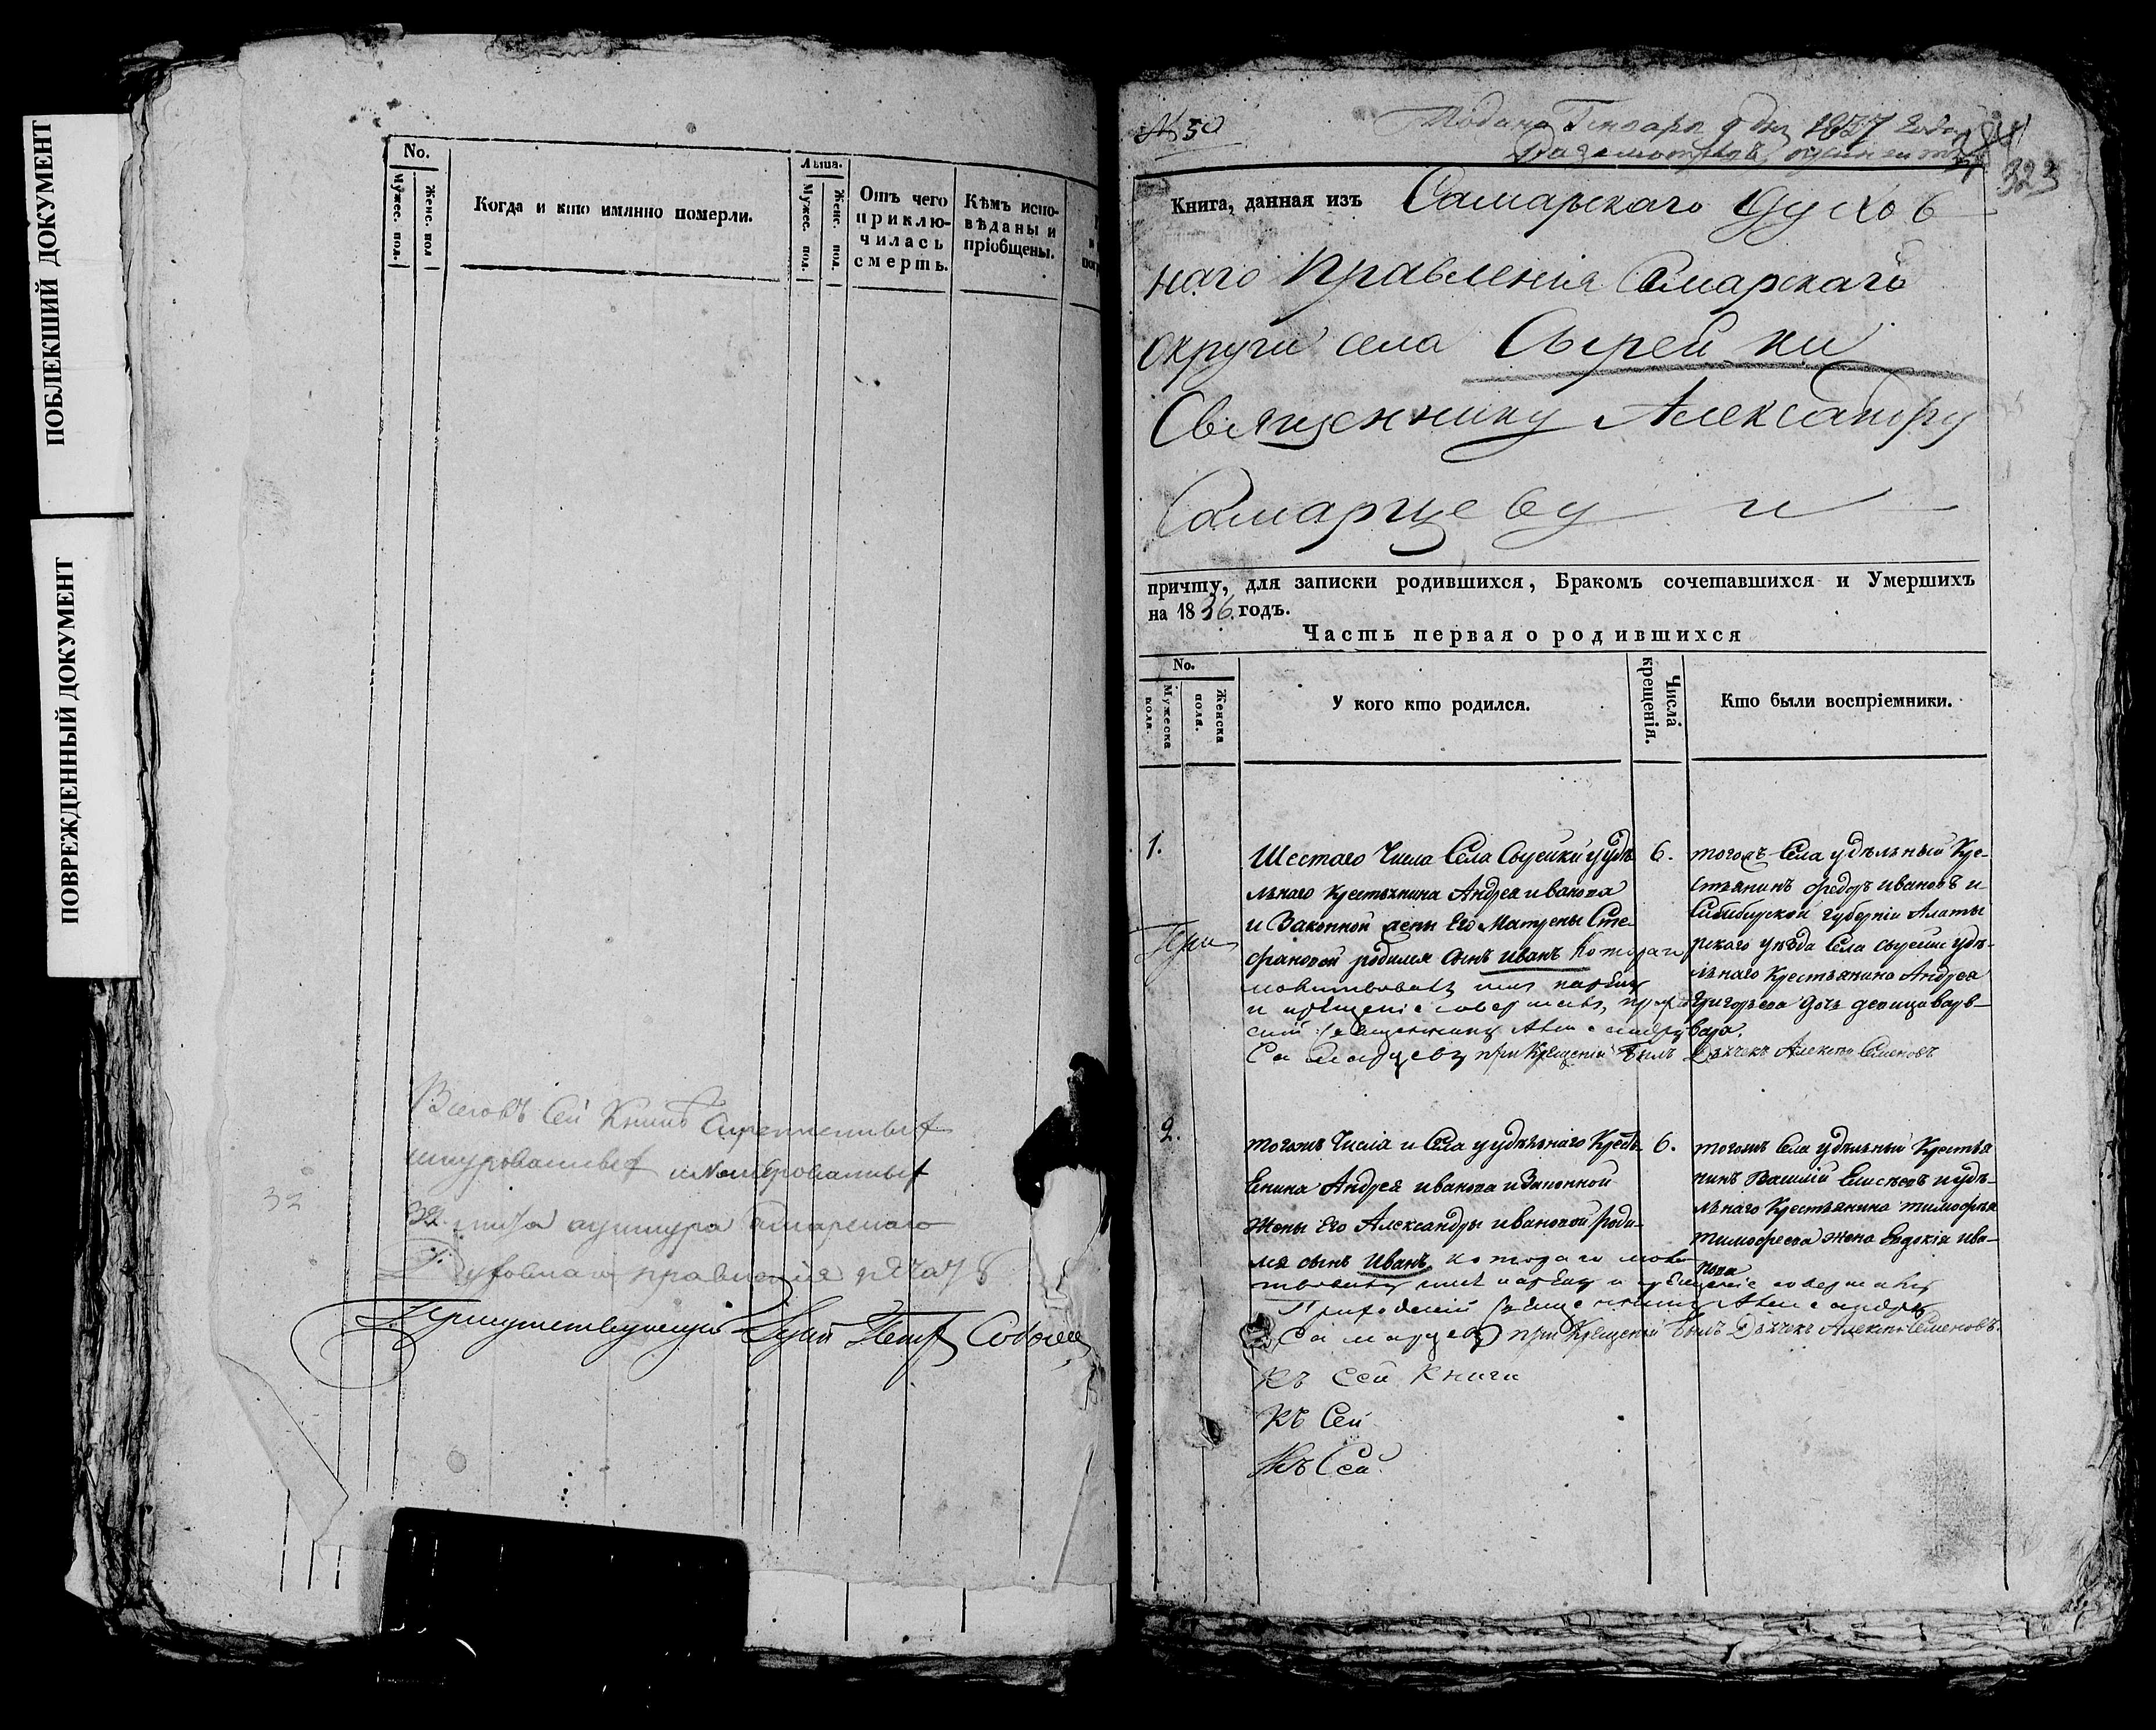 ПОБЛЕКШИЙ ДОКУМЕНТ
ПОВРЕЖДЕННЫЙ ДОКУМЕНТ
No.
Мужес. пол.
Женс. пол
Когда и кто имянно померли.
Лѣта.
Мужес. пол.
Женс. пол.
Отъ чего
приклю-
чилась
смерть.
Кѣмъ испо-
вѣданы и
пріобщены.
Всего въ сей книгѣ
шнурованныхъ и номерованныхъ
32 листа Самарскаго
Духовнаго правленія
Присутствующій
32
№ 50
Подана Генваря 9 дня 1837 года
323
Книга, данная изъ Самарскаго Духов
наго Правленія Самарскаго
округи села Сырейки
Священнику Александру
Самарцеву и
причту, для записки родившихся, Бракомъ сочетавшихся и Умершихъ
на 1836 годъ.
Часть первая о родившихся
No.
Мужеска пола.
Женска пола.
У кого кто родился.
Числа крещенія.
Кто были воспріемники.
1.
Шестаго Числа Села Сырейки у удѣ
льнаго крестьянина Андрея Иванова
и Законной жены Его Матрены Сте-
фановой родился сынъ Иванъ Котораго
молитвовалъ имя нарекъ
и крещеніе совершалъ приход
скій священникъ Александръ
Самарцевъ при Крещеніи былъ Дьячекъ Алексей Семеновъ
6.
тогожъ Села удѣльный Кре-
стьянинъ Федоръ Ивановъ и
Симбирской губерніи Алаты
рскаго уѣзда Села удѣ-
льнаго Крестьянина Андрея
Григорьева дочь девица Варв-
вара.
2.
тогожъ Числа и Села у удѣльнаго Кресть
Енина Андрея Иванова и Законной
Жены Его Александры Ивановой роди-
лся сынъ Иванъ котораго моли
твовалъ имя нарекъ и крещеніе совершалъ
Приходскій священникъ Александръ
Самарцевъ при Крещеніи былъ Дьячекъ Алексей Семеновъ.
6.
тогожъ Села удѣльный Крестья
нинъ Василій Елисеевъ и удѣ-
льнаго Крестьянина Тимофея
Тимофеева жена Евдокія Ива-
нова
Къ сей книги
Къ Сей
Къ Сей.